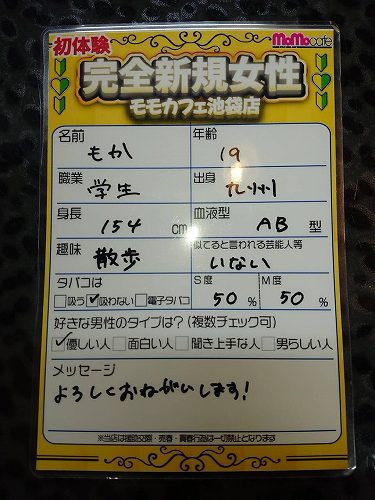 初体験
MoMocafe
完全新規女性
モモカフェ池袋店
名前 もか
年齢 19
職業 学生
出身 九州
身長 154 cm
血液型 AB 型
趣味 散歩
似てると言われる芸能人等 いない
タバコは
吸う 吸わない 電子タバコ
S度 50 %
M度 50 %
好きな男性のタイプは?(複数チェック可)
優しい人 面白い人 聞き上手な人 男らしい人
メッセージ
よろしくおねがいします!
※当店は援助交際・売春・買春行為は一切禁止となります